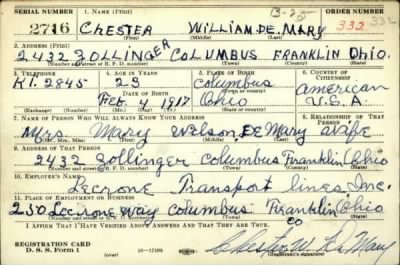 SERIAL NUMBER 1. NAME (Print) ORDER NUMBER
2716 CHESTER WILLIAM DE MARY 332 332
(First) (Middle) (Last)
2. ADDRESS (Print)
2432 ZOLLINGER COLUMBUS FRANKLIN Ohio.
(Number and street or R. F. D. number) (Town) (County) (State)
3. TELEPHONE 4. AGE IN YEARS 5. PLACE OF BIRTH 6. COUNTRY OF CITIZENSHIP
KI. 2845 23 Columbus American
DATE OF BIRTH
Feb. 4, 1917 Ohio U.S.A.
(Exchange) (Number) (Mo.) (Day) (Yr.) (State or country)
7. NAME OF PERSON WHO WILL ALWAYS KNOW YOUR ADDRESS 8. RELATIONSHIP OF THAT PERSON
Mrs. Mary Wilson De Mary Wife
(Mr., Mrs., Miss) (First) (Middle) (Last)
9. ADDRESS OF THAT PERSON
2432 Zollinger Columbus Franklin Ohio
(Number and street or R. F. D. number) (Town) (County) (State)
10. EMPLOYER'S NAME
Lecrone Transport Lines, Inc.
11. PLACE OF EMPLOYMENT OR BUSINESS
250 Lecrone Way Columbus Franklin Ohio
(Number and street or R. F. D. number) (Town) (County) (State)
CO
I AFFIRM THAT I HAVE VERIFIED ABOVE ANSWERS AND THAT THEY ARE TRUE.
REGISTRATION CARD
D. S. S. Form 1 Chester W. De Mary
(Registrant's signature)